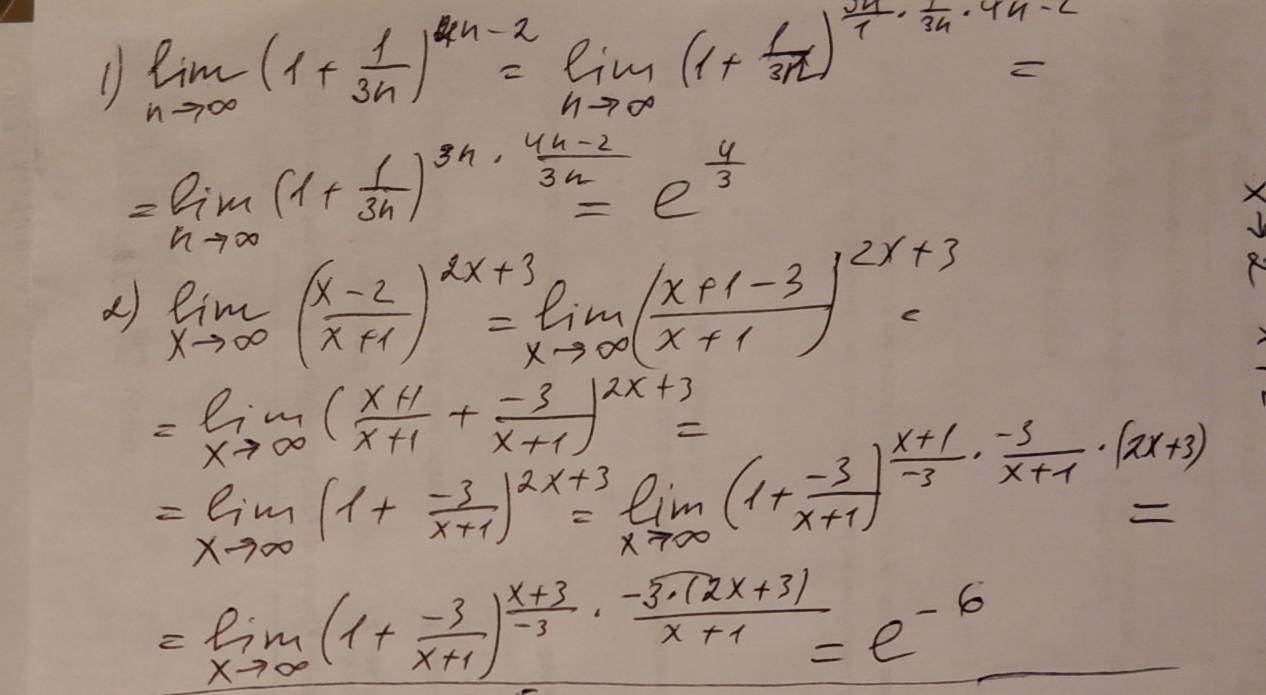 1) lim n→∞ (1 + 1/3n)^(4n-2) = lim n→∞ (1 + 1/3n)^(3n/1 · 1/3n · 4n-2) =
= lim n→∞ (1 + 1/3n)^(3n · (4n-2)/3n) = e^(4/3)
2) lim x→∞ ((x-2)/(x+1))^(2x+3) = lim x→∞ ((x+1-3)/(x+1))^(2x+3) =
= lim x→∞ ((x+1)/(x+1) + (-3)/(x+1))^(2x+3) =
= lim x→∞ (1 + (-3)/(x+1))^(2x+3) = lim x→∞ (1 + (-3)/(x+1))^((x+1)/(-3) · (-3)/(x+1) · (2x+3)) =
= lim x→∞ (1 + (-3)/(x+1))^((x+3)/(-3) · (-3·(2x+3))/(x+1)) = e^(-6)
x→2